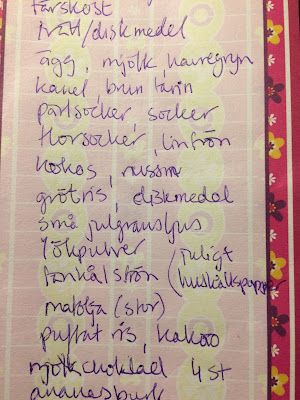 färskost
tvätt/diskmedel
ägg, mjölk, havregryn
kanel, brun farin
pärlsocker, socker
florsocker, linfrön
kokos, russin
grötris, diskmedel
små julgransljus
lökpulver
fänkålsfrön (juligt hushållspapper
matolja (stor)
puffat ris, kakao
mjölkchoklad 4 st
ananasburk